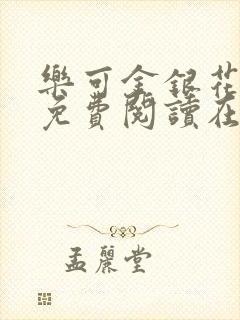 樂可金銀花
免費閱讀在
孟麗堂